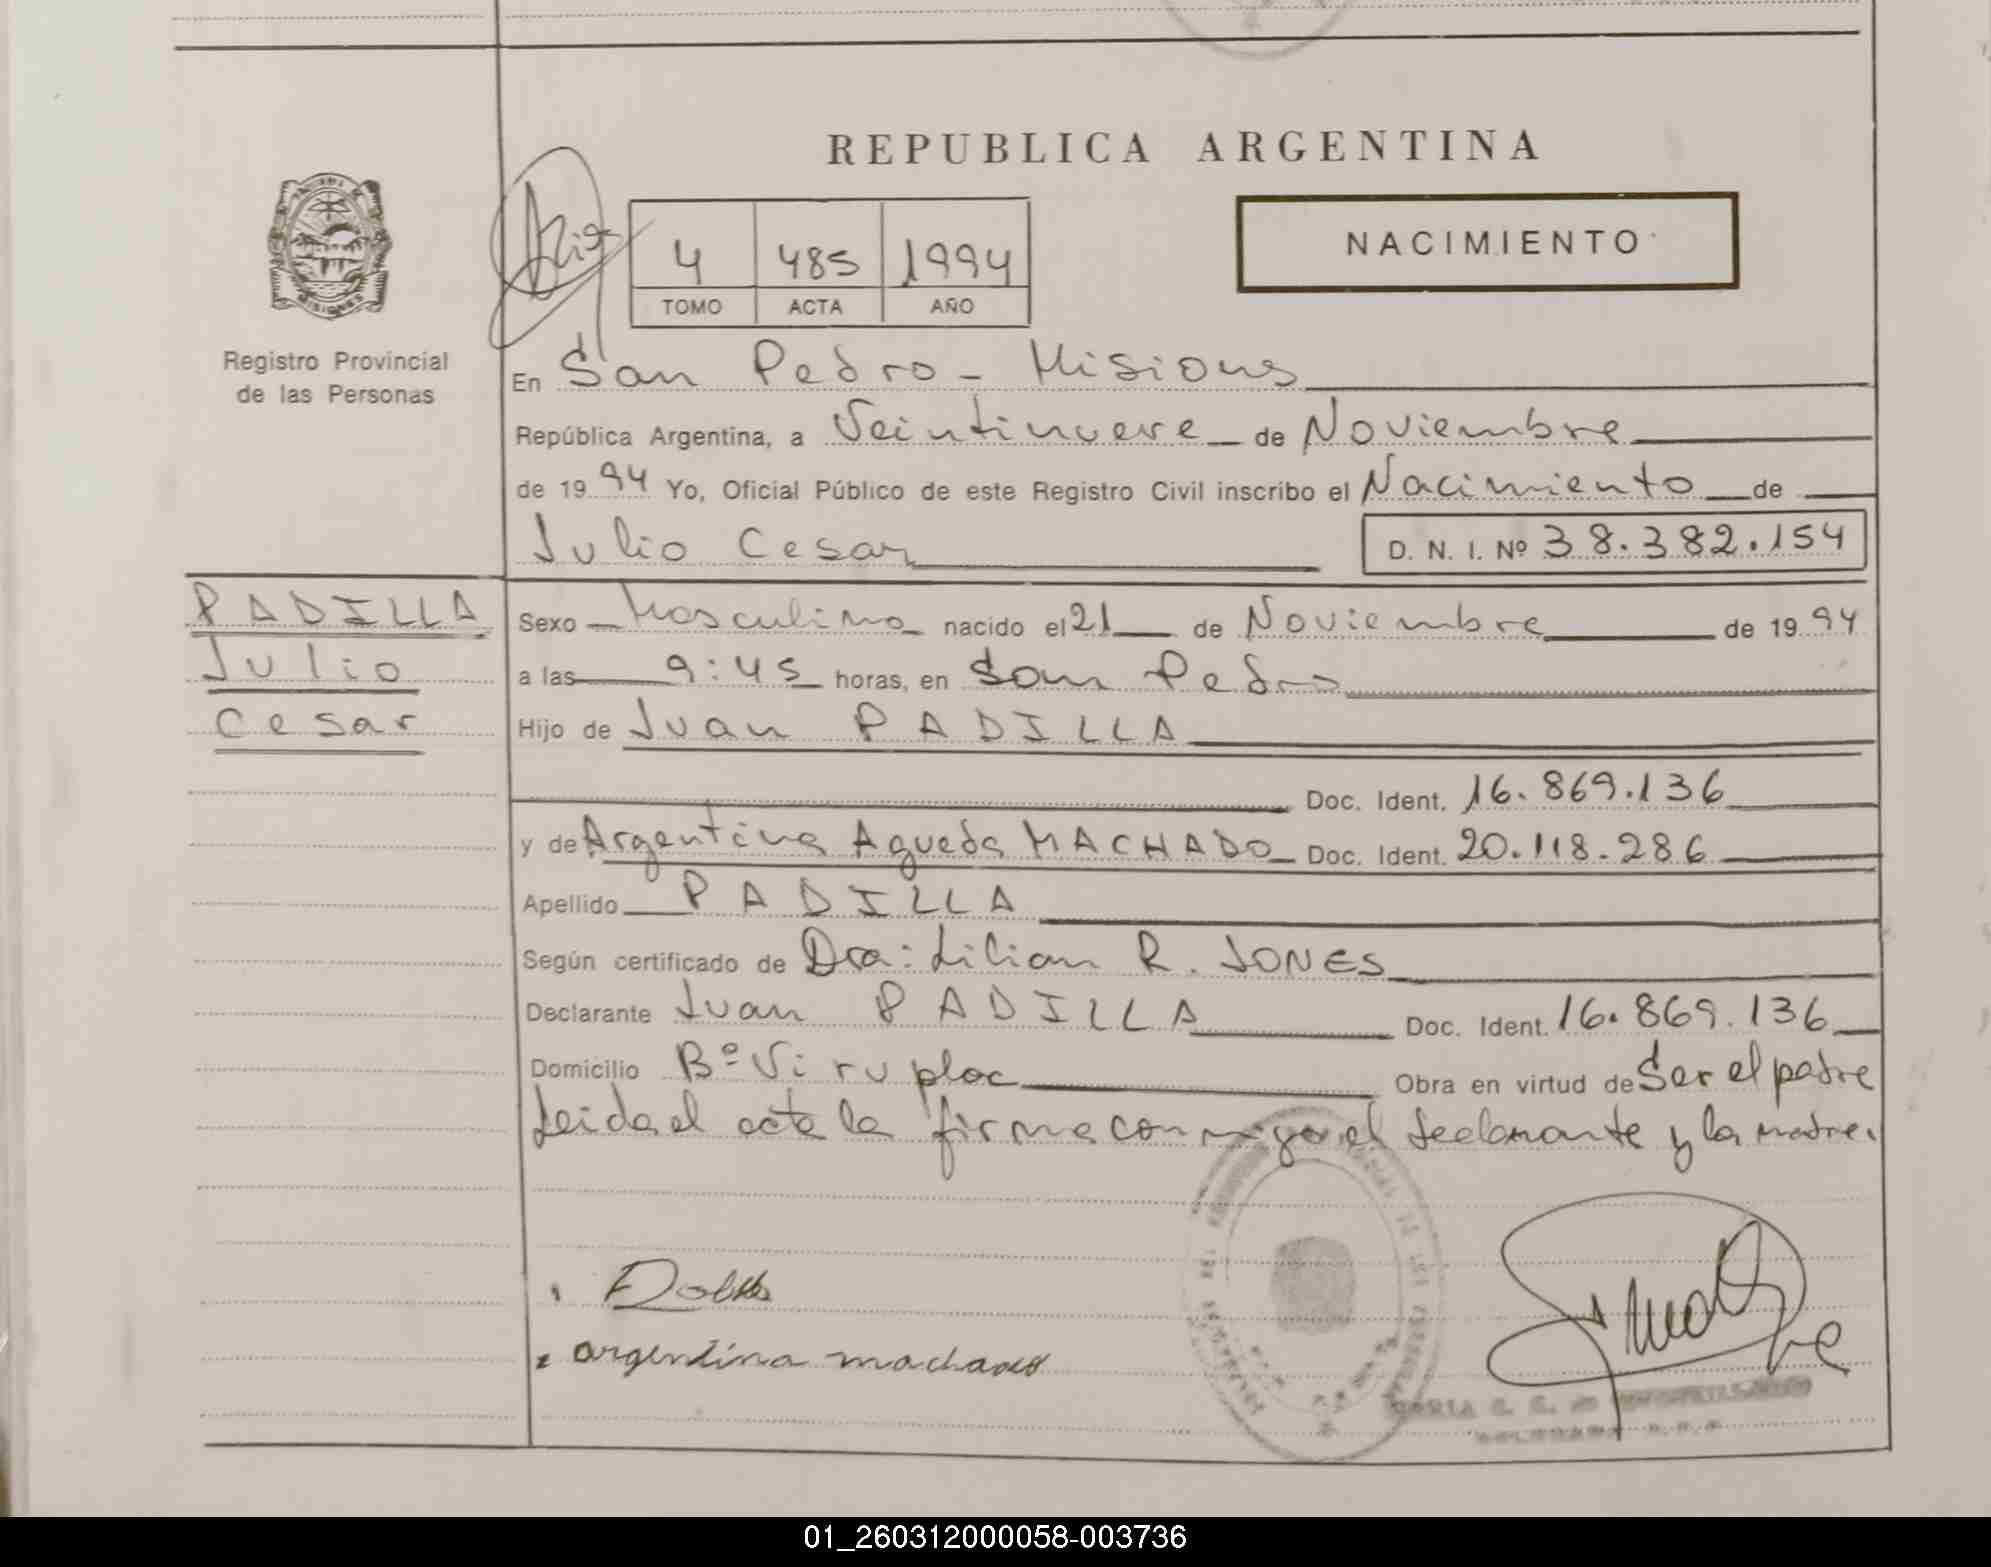 REPUBLICA ARGENTINA
NACIMIENTO
4 485 1994
TOMO ACTA AÑO
MISIONES
Registro Provincial
de las Personas
En San Pedro - Misiones
República Argentina, a Veintinueve de Noviembre
de 1994 Yo, Oficial Público de este Registro Civil inscribo el Nacimiento de
Julio Cesar D. N. I. Nº 38.382.154
PADILLA
Julio
Cesar
Sexo Masculino nacido el 21 de Noviembre de 1994
a las 9:45 horas, en San Pedro
Hijo de Juan PADILLA
Doc. Ident. 16.869.136
y de Argentina Agueda MACHADO Doc. Ident. 20.118.286
Apellido PADILLA
Según certificado de Dra: Lilian R. JONES
Declarante Juan PADILLA Doc. Ident. 16.869.136
Domicilio Bº Viru ploc Obra en virtud de Ser el padre
Leida el acta la firma conmigo el declarante y la madre.
argentina machado
01_260312000058-003736